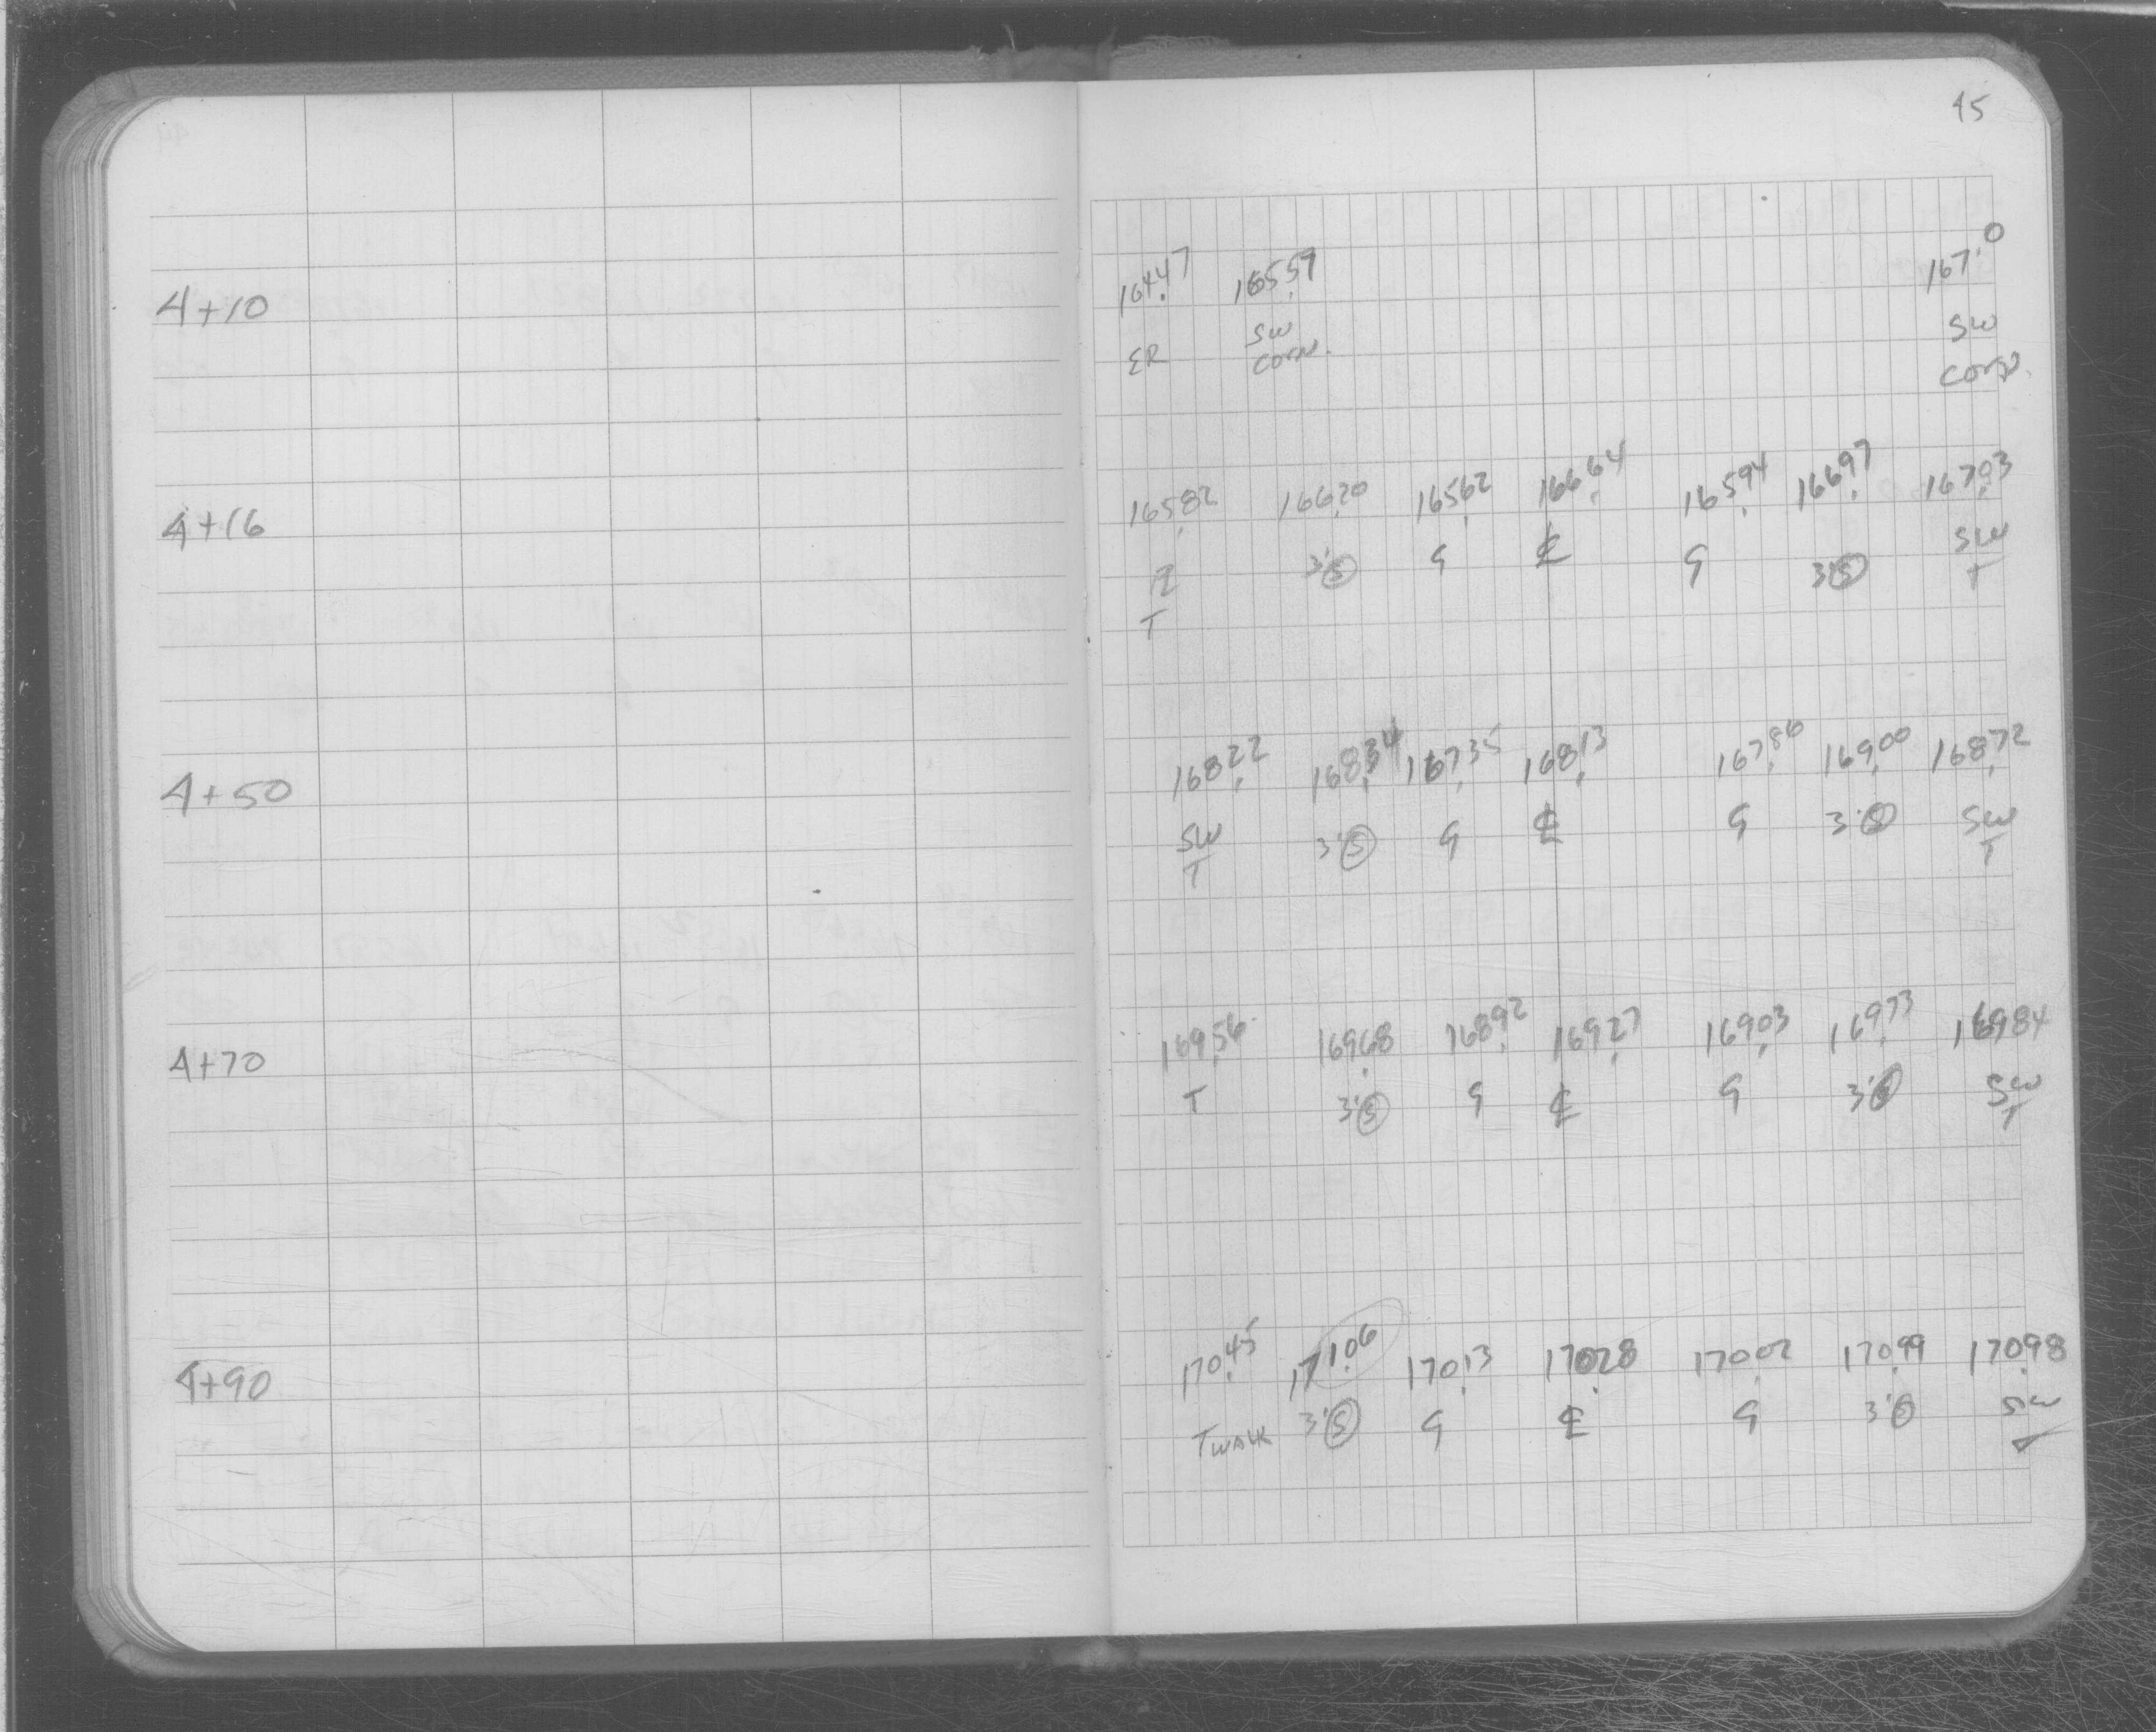 45
4+10 164.47 165.59 167.0
ER SW SW
CORN. CORN.
4+16 165.82 166.20 165.62 166.64 165.94 166.97 167.03
3'Ⓢ G ℄ G 3'Ⓢ SW
T T
4+50 168.22 168.34 167.35 168.13 167.86 169.00 168.72
SW 3'Ⓢ G ℄ G 3'Ⓢ SW
T T
4+70 169.56 169.68 168.92 169.27 169.03 169.73 169.84
T 3'Ⓢ G ℄ G 3'Ⓢ SW
T
4+90 170.45 171.06 170.13 170.28 170.02 170.99 170.98
T WALK 3'Ⓢ G ℄ G 3'Ⓢ SW